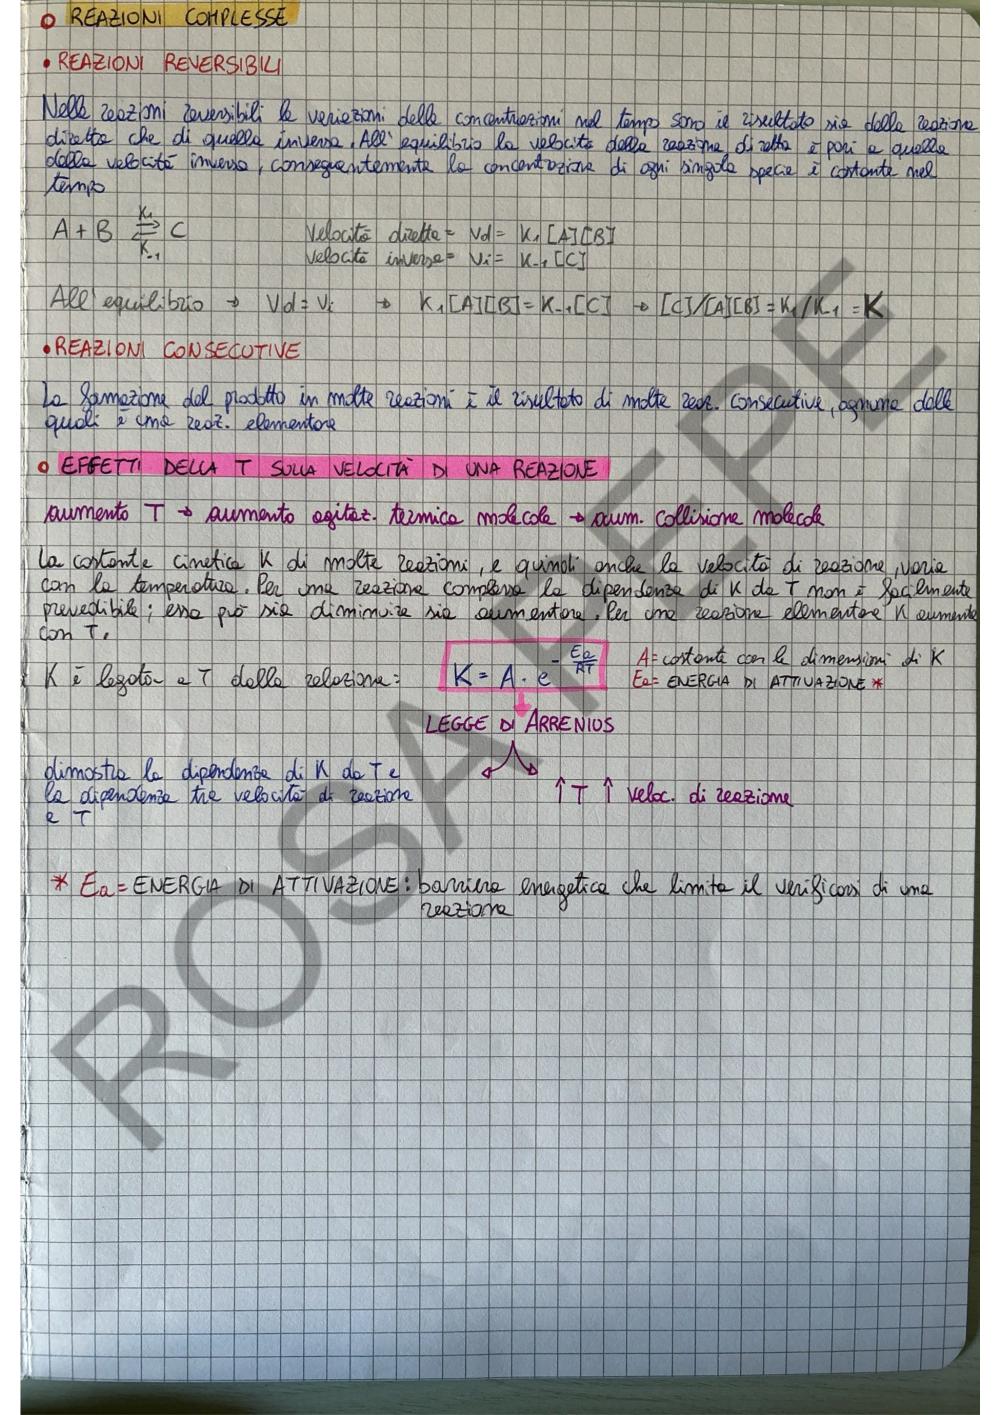 REAZIONI COMPLESSE
• REAZIONI REVERSIBILI
Nelle reazioni reversibili le variazioni delle concentrazioni nel tempo sono il risultato sia della reazione
diretta che di quella inversa. All'equilibrio la velocità della reazione diretta è pari a quella
della velocità inversa, conseguentemente la concentrazione di ogni singola specie è costante nel
tempo
K₁
A + B ⇌ C
K₋₁
Velocità diretta = Vd = K₁ [A][B]
Velocità inversa = Vi = K₋₁ [C]
All'equilibrio → Vd = Vi → K₁[A][B] = K₋₁[C] → [C]/[A][B] = K₁/K₋₁ = K
• REAZIONI CONSECUTIVE
La formazione del prodotto in molte reazioni è il risultato di molte reaz. consecutive, ognuna delle
quali è una reaz. elementare
EFFETTI DELLA T SULLA VELOCITÀ DI UNA REAZIONE
aumento T → aumento agitaz. termica molecole → aum. collisione molecole
La costante cinetica K di molte reazioni, e quindi anche la velocità di reazione, varia
con la temperatura. Per una reazione complessa la dipendenza di K da T non è facilmente
prevedibile; essa può sia diminuire sia aumentare. Per una reazione elementare K aumenta
con T.
K è legata a T dalla relazione:
K = A · e^(-Ea/RT)
A = costante con le dimensioni di K
Ea = ENERGIA DI ATTIVAZIONE *
LEGGE DI ARRENIUS
dimostra la dipendenza di K da T e
la dipendenza tra velocità di reazione
e T
↑ T ↑ veloc. di reazione
* Ea = ENERGIA DI ATTIVAZIONE: barriera energetica che limita il verificarsi di una
reazione
ROSA PEPE